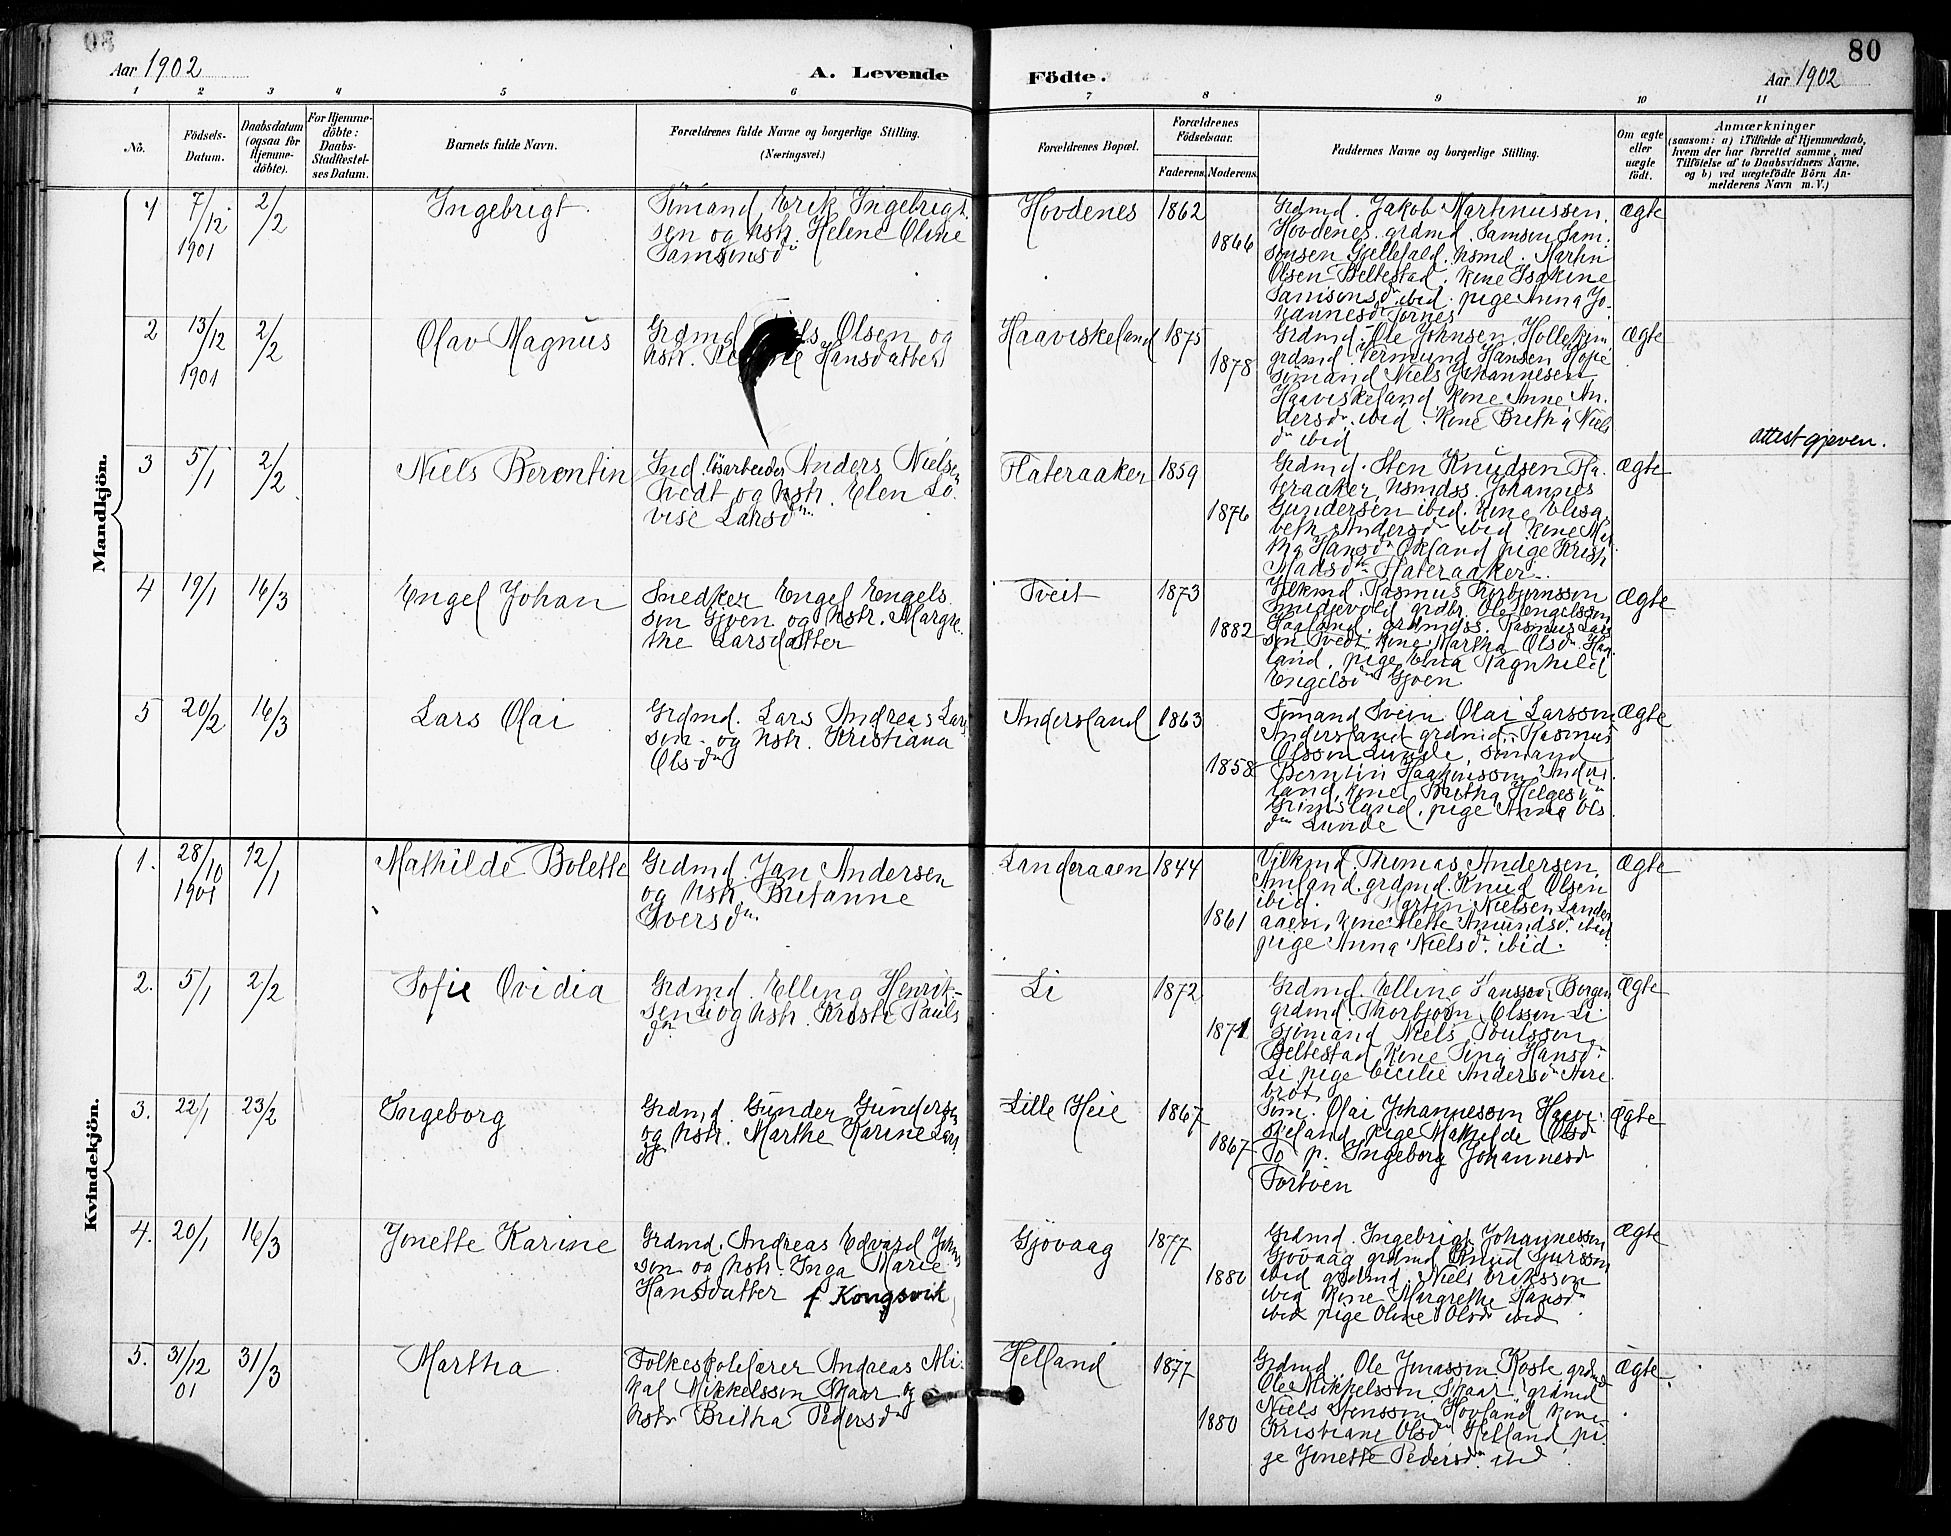 80
Aar 1902
A. Levende Födte.
Aar 1902
1 2 3 4 5 6 7 8 9 10 11
No.
Födsels-
Datum.
Daabsdatum
(ogsaa for
Hjemme-
döbte).
For Hjemme-
döbte:
Daabs-
Stadfæstel-
ses Datum.
Barnets fulde Navn.
Forældrenes fulde Navne og borgerlige Stilling.
(Næringsvei.)
Forældrenes Bopæl.
Forældrenes
Födselsaar.
Faderens. Moderens.
Faddernes Navne og borgerlige Stilling.
Om ægte
eller
uægte
födt.
Anmærkninger
(saasom: a) i Tilfælde af Hjemmedaab,
hvem der har forrettet samme, med
Tilföielse af to Daabsvidners Navne,
og b) ved uægtefödte Börn An-
melderens Navn m. V.)
Mandkjön.
1
7/12
1901
2/2
Ingebrigt
Sömand Erik Ingebrigt
sen og hstr. Helene Oline
Samsonsdr
Hovdenes
1862
1866
Grdmd. Jakob Martinussen
Hovdenes. grdmd. Samson Sam-
sonsen Gjellefald. hsmd. Martin
Olsen Beltestad. kone Isakine
Samsonsdr ibid. pige Anna Jo-
hannesdr Tornes
Ægte
2
13/12
1901
2/2
Olav Magnus
Grdmd Olsen og
hstr. Hansdatter
Haaviskeland
1875
1878
Grdmd. Ole Johnsen
grdmd. Vermund Hansen Hope
sömand Niels Johannesen
Haaviskeland kone Anne An-
dersdr. ibid. kone Britha Niels
dr ibid
Ægte
attest gjeven.
3
5/1
2/2
Niels Berentin
Ind. lösarbeider Anders Nielsen
Tvedt og hstr. Elen Lo-
vise Larsdr
Flateraaker
1859
1876
Grdmd. Sten Knudsen Fla-
teraaker, hsmdss. Johannes
Gundersen ibid. kone Elisa-
beth Andersdr ibid kone
Hansdr Økland pige
Madsdr Flateraaker
Ægte
4
19/1
16/3
Engel Johan
Snedker Engel Engels
sen Gjöen og hstr. Margre-
the Larsdatter
Tveit
1873
1882
Ylkmd. Rasmus Torbjörnsson
grdbr. Ole Engelssen
Haaland, grdmdss. Rasmus Lars
sen Tvedt kone Martha Olsdr Haa-
land, pige Ragnhild
Engelsdr Gjöen
Ægte
5
20/2
16/3
Lars Olai
Grdmd. Lars Andreas Lars
sen og hstr. Kristiana
Olsdr
Andersland
1863
1858
Sömand Svein Olai Larsson
Andersland grdmd. Rasmus
Olsson Lunde, Sömand
Berntin Haakonsson Anders-
land, kone Britha Helgesdr
Grimsland, pige Anna Ols
dr Lunde
Ægte
Kvindekjön.
1.
28/10
1901
12/1
Mathilde Bolette
Grdmd. Jan Andersen
og hstr. Britanne
Iversdr
Landeraaen
1844
1861
Vilkmd. Thomas Andersen
Amland, grdmd. Knud Olsen
ibid. Martin Nielsen Lander
aaen, kone Mette Amundsdr. ibid
pige Anna Nielsdr. ibid.
Ægte
2.
5/1
2/2
Sofie Ovidia
Grdmd. Elling Henrik-
sen og hstr. Kristi Pauls
dr
Li
1872
1871
Grdmd. Elling Hanssen, Borgen
grdmd. Thorbjörn Olssen Li
sjömand Niels Poulsson
Beltestad kone Sina Hansdr
Li pige Cicilie Andersdr Aare
brot
Ægte
3.
22/1
23/2
Ingeborg
Grdmd. Gunder Gundersen
og hstr. Marthe Karine Lars
dr
Lille Heie
1867
1867
Söm. Olai Johannesson Haavi-
skeland, pige Mathilde Olsdr
To p. Ingeborg Johannesdr
Ægte
4.
20/1
16/3
Jonette Karine
Grdmd. Andreas Edvard Johns
sen og hstr. Inga Marie
Hansdatter f Kongsvik
Gjövaag
1877
1880
Grdmd. Ingebrigt Johannesson
Gjövaag grdmd Knud Sjursson
ibid grdmd. Niels Eriksson
ibid kone Margrethe Hansdr
ibid pige Oline Olsdr ibid
Ægte
5.
31/12
01
31/3
Martha
Folkeskolelærer Andreas Mi-
kal Mikkelsson Skaar og
hstr Britha Pedersdr
Helland
1877
1880
Grdmd. Ole Jonassön Koste grdmd
Ole Mikkelsson Skaar. grdmd
Niels Stensson Hovland kone
Kristiane Olsdr Helland pi-
ge Jonette Pedersdr ibid
Ægte